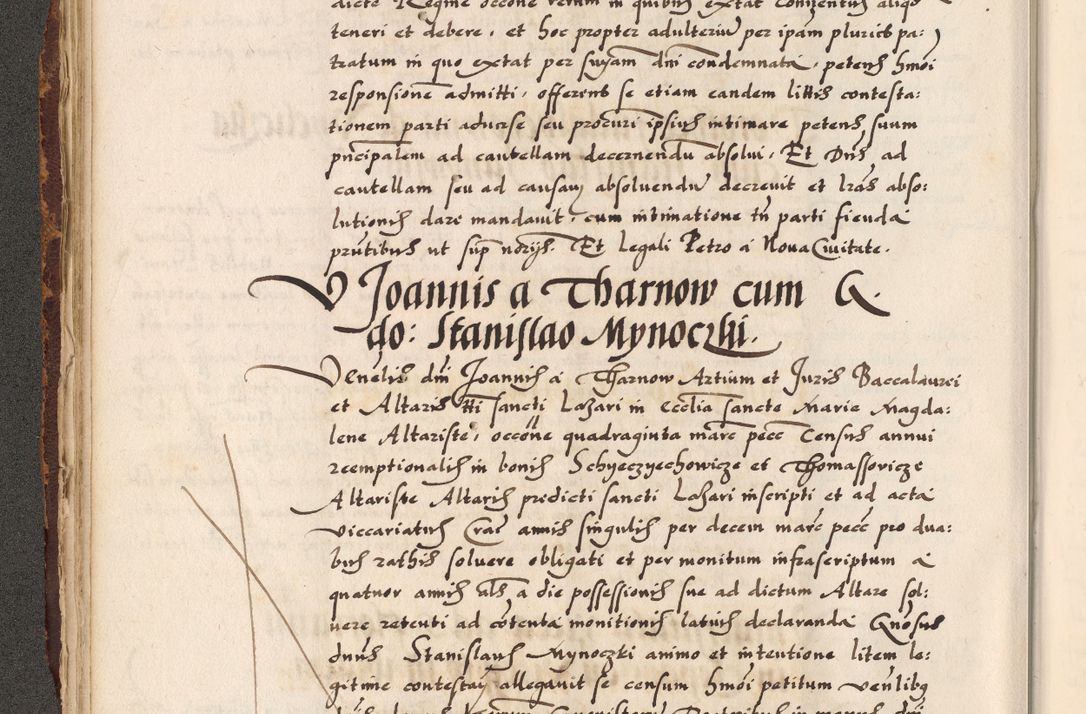 dicte Regine occone rerum in quibus extat consentus aliqd
teneri et debere, et hoc propter adulteriu per ipam pluries pa:
tratum in quo extat per suam dni condemnata, petens hmoi
responsione admitti, offerens se etiam eandem littis contesta:
tionem parti aduerse seu procuri ipsius intimare petens, suum
pncipalem ad cautellam decernendu absolui. Et Dns, ad
cautellam seu ad causam absoluendu decreuit et lras abso:
lutionis dare mandauit, cum intimatione tn parti fienda
pntibus ut sup norijs. Et Legali Petro a Noua Ciuitate.
V Joannis a Tharnow cum G.
do: Stanislao Mynoczki.
Venelis dni Joannis a Tharnow Artium et Juris Baccalaurei
et Altaris tti sancti Lazari in Ecclia sancte Marie Magda:
lene Altariste, occone quadraginta marc pecc Census annui
reemptionalis in bonis Schyeczyechowicze et Thomassovicze
Altariste Altaris predicti sancti Lazari inscripti et ad acta
viccariatus Crac annis singulis per decem marc pecc pro dua:
bus rathis soluere obligati et per monitum infrascriptum a
quatuor annis als a die possessionis sue ad dictum Altare sol:
uere retenti ad cotenta monitionis latius declaranda Gnosus
dnus Stanislaus Mynoczki animo et intentione litem le:
gitime contestan allegauit se censum hmoi petitum venlibus